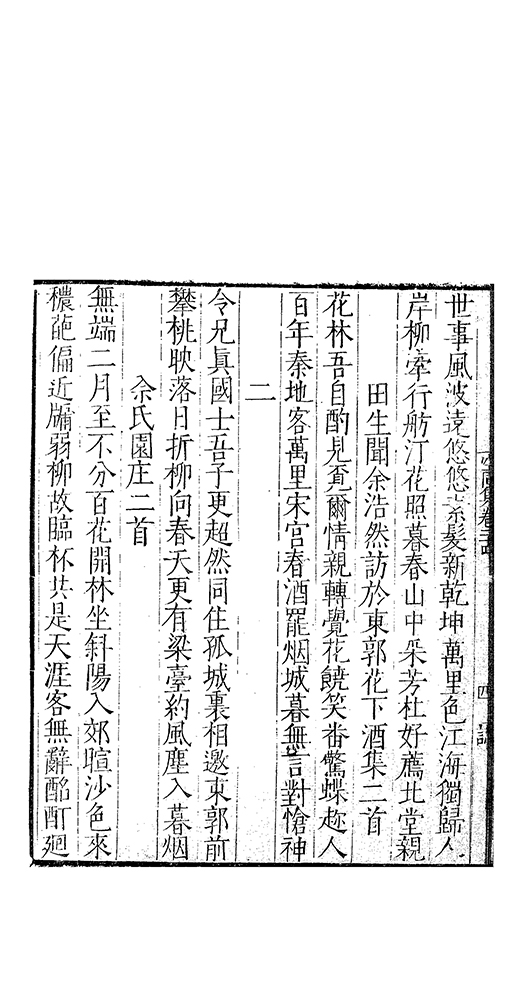 世事風波遠悠悠素髮新乾坤萬里色江海獨歸人
岸柳牽行舫汀花照暮春山中采芳杜好薦北堂親
田生聞余浩然訪於東郭花下酒集二首
花林吾自酌見爾情親轉覺花饒笑番驚蝶趂人
百年秦地客萬里宋宮春酒罷烟城暮無言對愴神
二
令兄眞國士吾子更超然同住孤城裏相邀東郭前
攀桃映落日折柳向春天更有梁臺約風塵入暮烟
佘氏園庄二首
無端二月至不分百花開林坐斜陽入郊暄沙色來
穠葩偏近牖弱柳故臨杯共是天涯客無辭酩酊廻